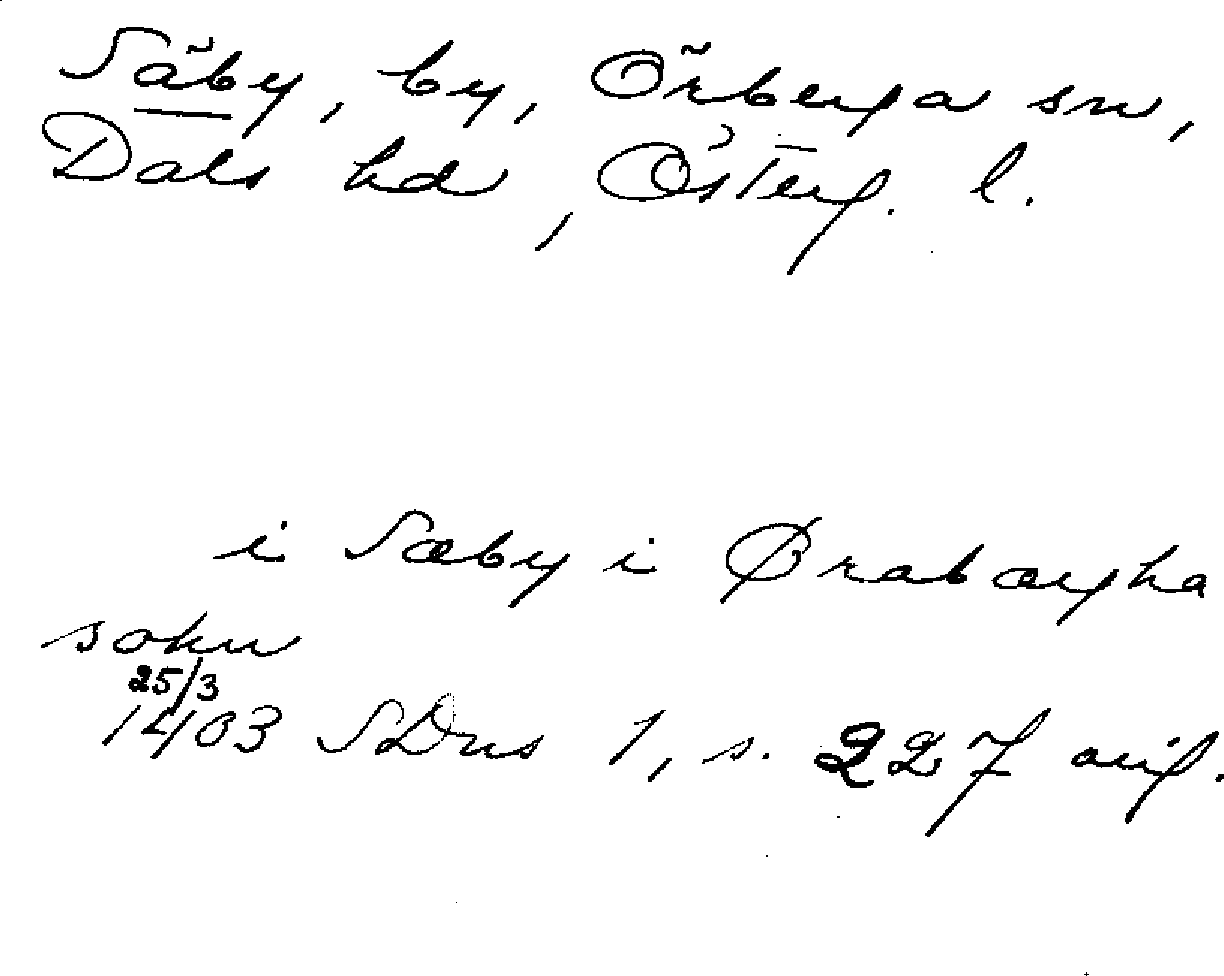 Säby, by, Örberga sn,
Dals hd, Österg. l.
i Sæby i Ørabærgha
sokn
25/3
1403 SDns 1, s. 227 orig.